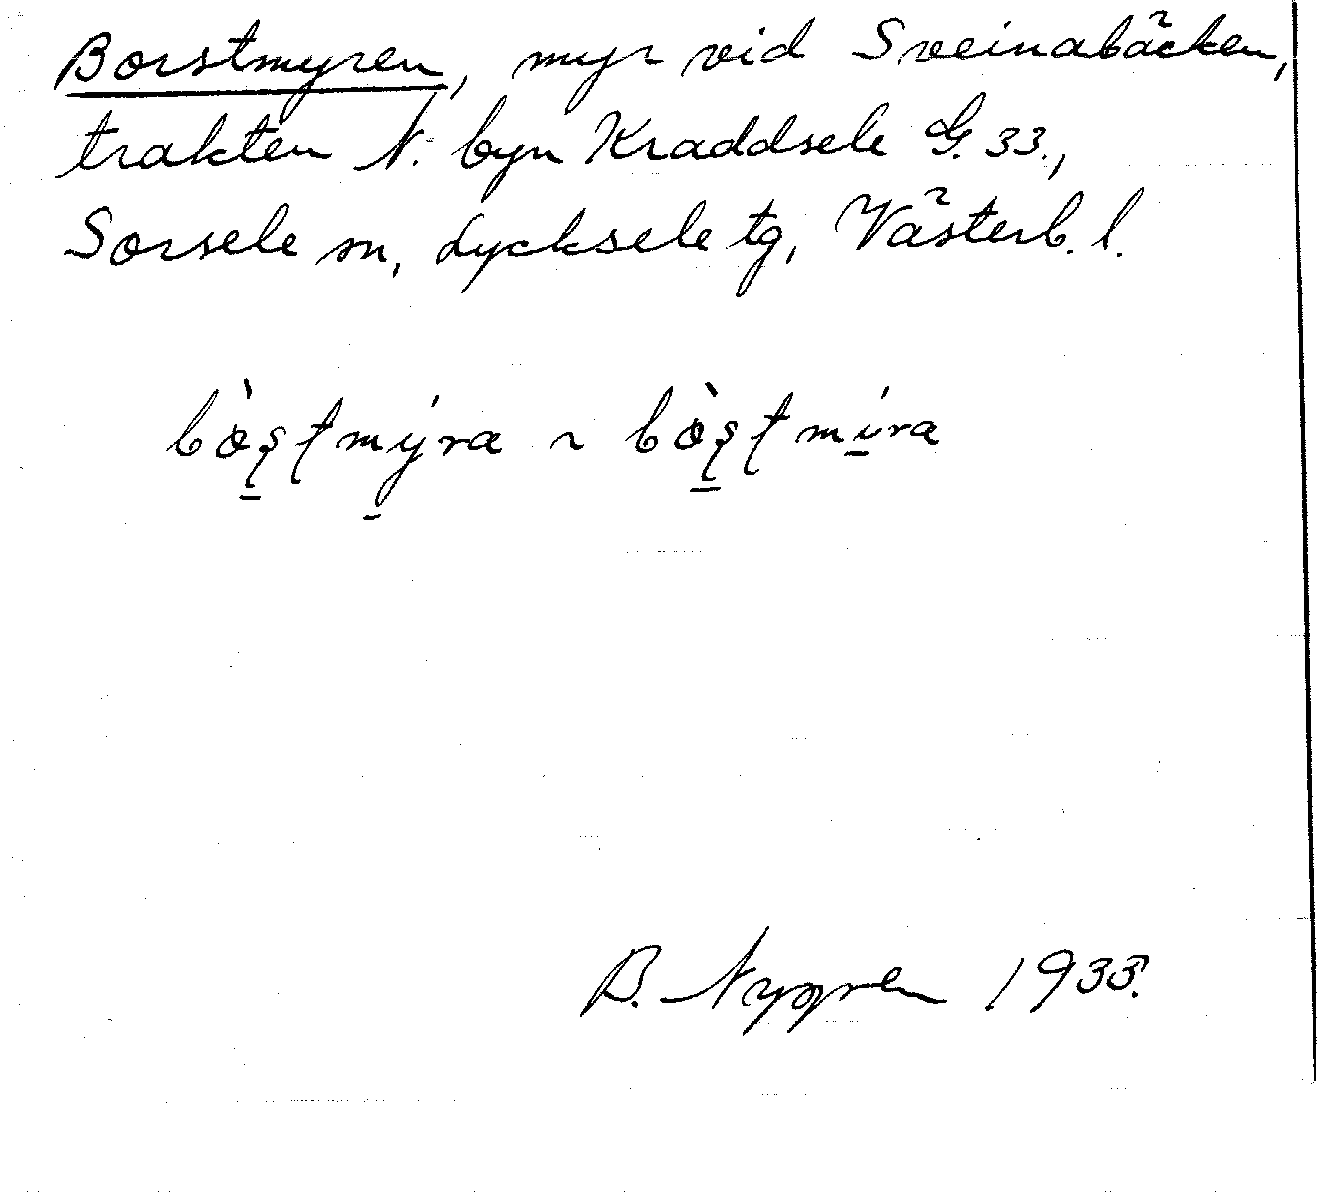 Borstmyren, myr vid Sveinabäcken,
trakten N. byn Kraddsele G. 33.,
Sorsele sn, Lycksele tg, Västerb. l.
bòʂṯmýra ~ bòʂṯmúra
B. Nygren 1933.